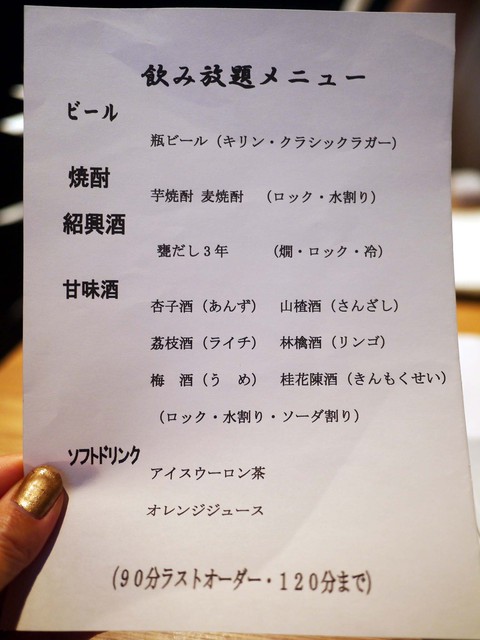 飲み放題メニュー
ビール
瓶ビール（キリン・クラシックラガー）
焼酎
芋焼酎 麦焼酎 （ロック・水割り）
紹興酒
甕だし３年 （燗・ロック・冷）
甘味酒
杏子酒（あんず） 山楂酒（さんざし）
荔枝酒（ライチ） 林檎酒（リンゴ）
梅 酒（う め） 桂花陳酒（きんもくせい）
（ロック・水割り・ソーダ割り）
ソフトドリンク
アイスウーロン茶
オレンジジュース
（９０分ラストオーダー・１２０分まで）